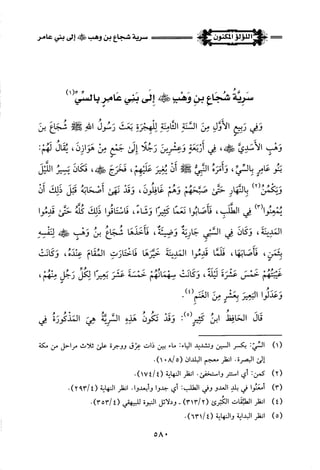 اللؤلؤ المكنون
سرية شجاع بن وهب ﷺ إلى بني عامر
سَرِيَّةُ شُجَاعِ بنِ وَهْبٍ ﷺ إِلَى بَنِي عَامِرٍ بِالسِّيِّ(١)
وَفِي رَبِيعٍ الأَوَّلِ مِنَ السَّنَةِ الثَّامِنَةِ لِلْهِجْرَةِ بَعَثَ رَسُولُ اللهِ ﷺ شُجَاعَ بنَ
وَهْبٍ الأَسَدِيَّ ﷺ، فِي أَرْبَعَةٍ وَعِشْرِينَ رَجُلًا إِلَى جَمْعٍ مِنْ هَوَازِنَ، يُقَالُ لَهُمْ:
بَنُو عَامِرٍ بِالسِّيِّ، وَأَمَرَهُ النَّبِيُّ ﷺ أَنْ يُغِيرَ عَلَيْهِمْ، فَخَرَجَ ﷺ، فَكَانَ يَسِيرُ اللَّيْلَ
وَيَكْمُنُ(٢) بِالنَّهَارِ حَتَّى صَبَّحَهُمْ وَهُمْ غَافِلُونَ، وَقَدْ نَهَى أَصْحَابَهُ قَبْلَ ذَلِكَ أَنْ
يُمْعِنُوا(٣) فِي الطَّلَبِ، فَأَصَابُوا نَعَمًا كَثِيرًا وَشَاءً، فَاسْتَاقُوا ذَلِكَ كُلَّهُ حَتَّى قَدِمُوا
المَدِينَةَ، وَكَانَ فِي السَّبْيِ جَارِيَةٌ وَضِيئَةٌ، فَأَخَذَهَا شُجَاعُ بنُ وَهْبٍ ﷺ لِنَفْسِهِ
بِثَمَنٍ، فَأَصَابَهَا، فَلَمَّا قَدِمُوا المَدِينَةَ خَيَّرَهَا فَاخْتَارَتِ المُقَامَ عِنْدَهُ، وَكَانَتْ
غَيْبَتُهُمْ خَمْسَ عَشْرَةَ لَيْلَةً، وَكَانَتْ سِهَامُهُمْ خَمْسَةَ عَشَرَ بَعِيرًا لِكُلِّ رَجُلٍ مِنْهُمْ،
وَعَدَلُوا البَعِيرَ بِعَشْرٍ مِنَ الغَنَمِ(٤).
قَالَ الحَافِظُ ابنُ كَثِيرٍ(٥): وَقَدْ تَكُونُ هَذِهِ السَّرِيَّةُ هِيَ المَذْكُورَةُ فِي
(١) السِّيُّ: بكسر السين وتشديد الياء: ماء بين ذات عِرْق ووجرة على ثلاث مراحل من مكة
إلى البصرة. انظر معجم البلدان (١٠٨/٥).
(٢) كمن: أي استتر واستخفى. انظر النهاية (١٧٤/٤).
(٣) أمعنُوا في بلدِ العدو وفي الطلب: أي جدوا وأبعدوا. انظر النهاية (٢٩٣/٤).
(٤) انظر الطبقات الكبرى (٣١٣/٢) ـ ودلائل النبوة للبيهقي (٣٥٣/٤).
(٥) انظر البداية والنهاية (٦٣١/٤).
٥٨٠